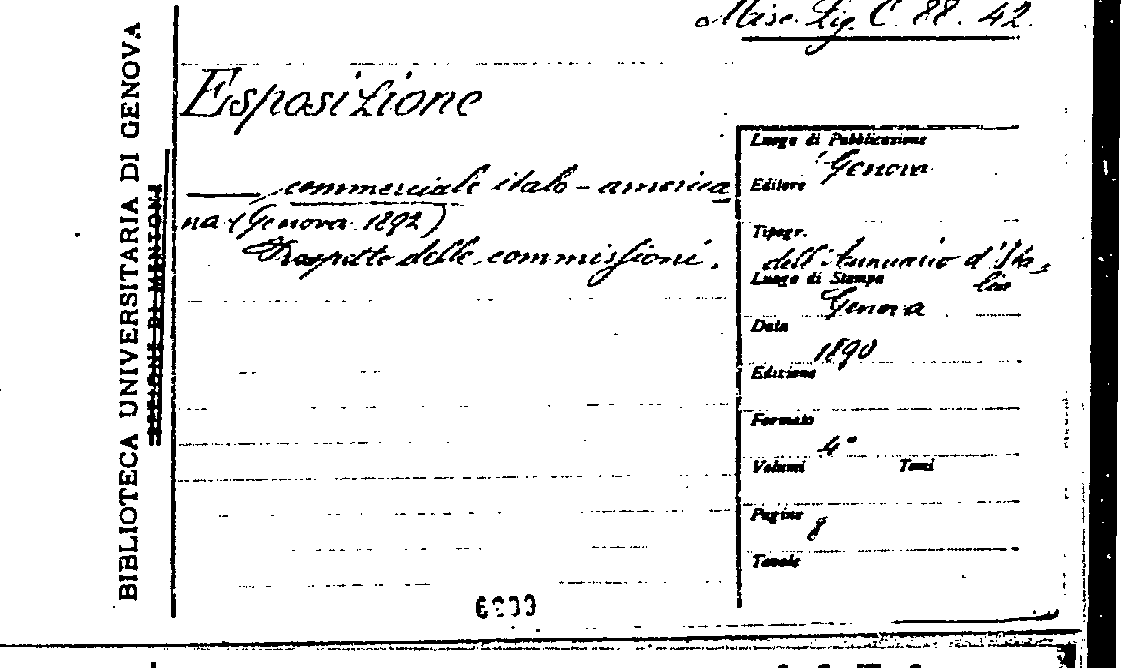 Misc. Lig. C. 88. 42.
BIBLIOTECA UNIVERSITARIA DI GENOVA
Esposizione
—— commerciale italo-america
na (Genova 1892)
Prospetto delle commissioni.
Luogo di Pubblicazione
Genova
Editore
Tipogr.
dell'Annuario d'Ita-
lia
Luogo di Stampa
Genova
Data
1890
Edizione
Formato
4°
Volumi Tomi
Pagine
8
Tavole